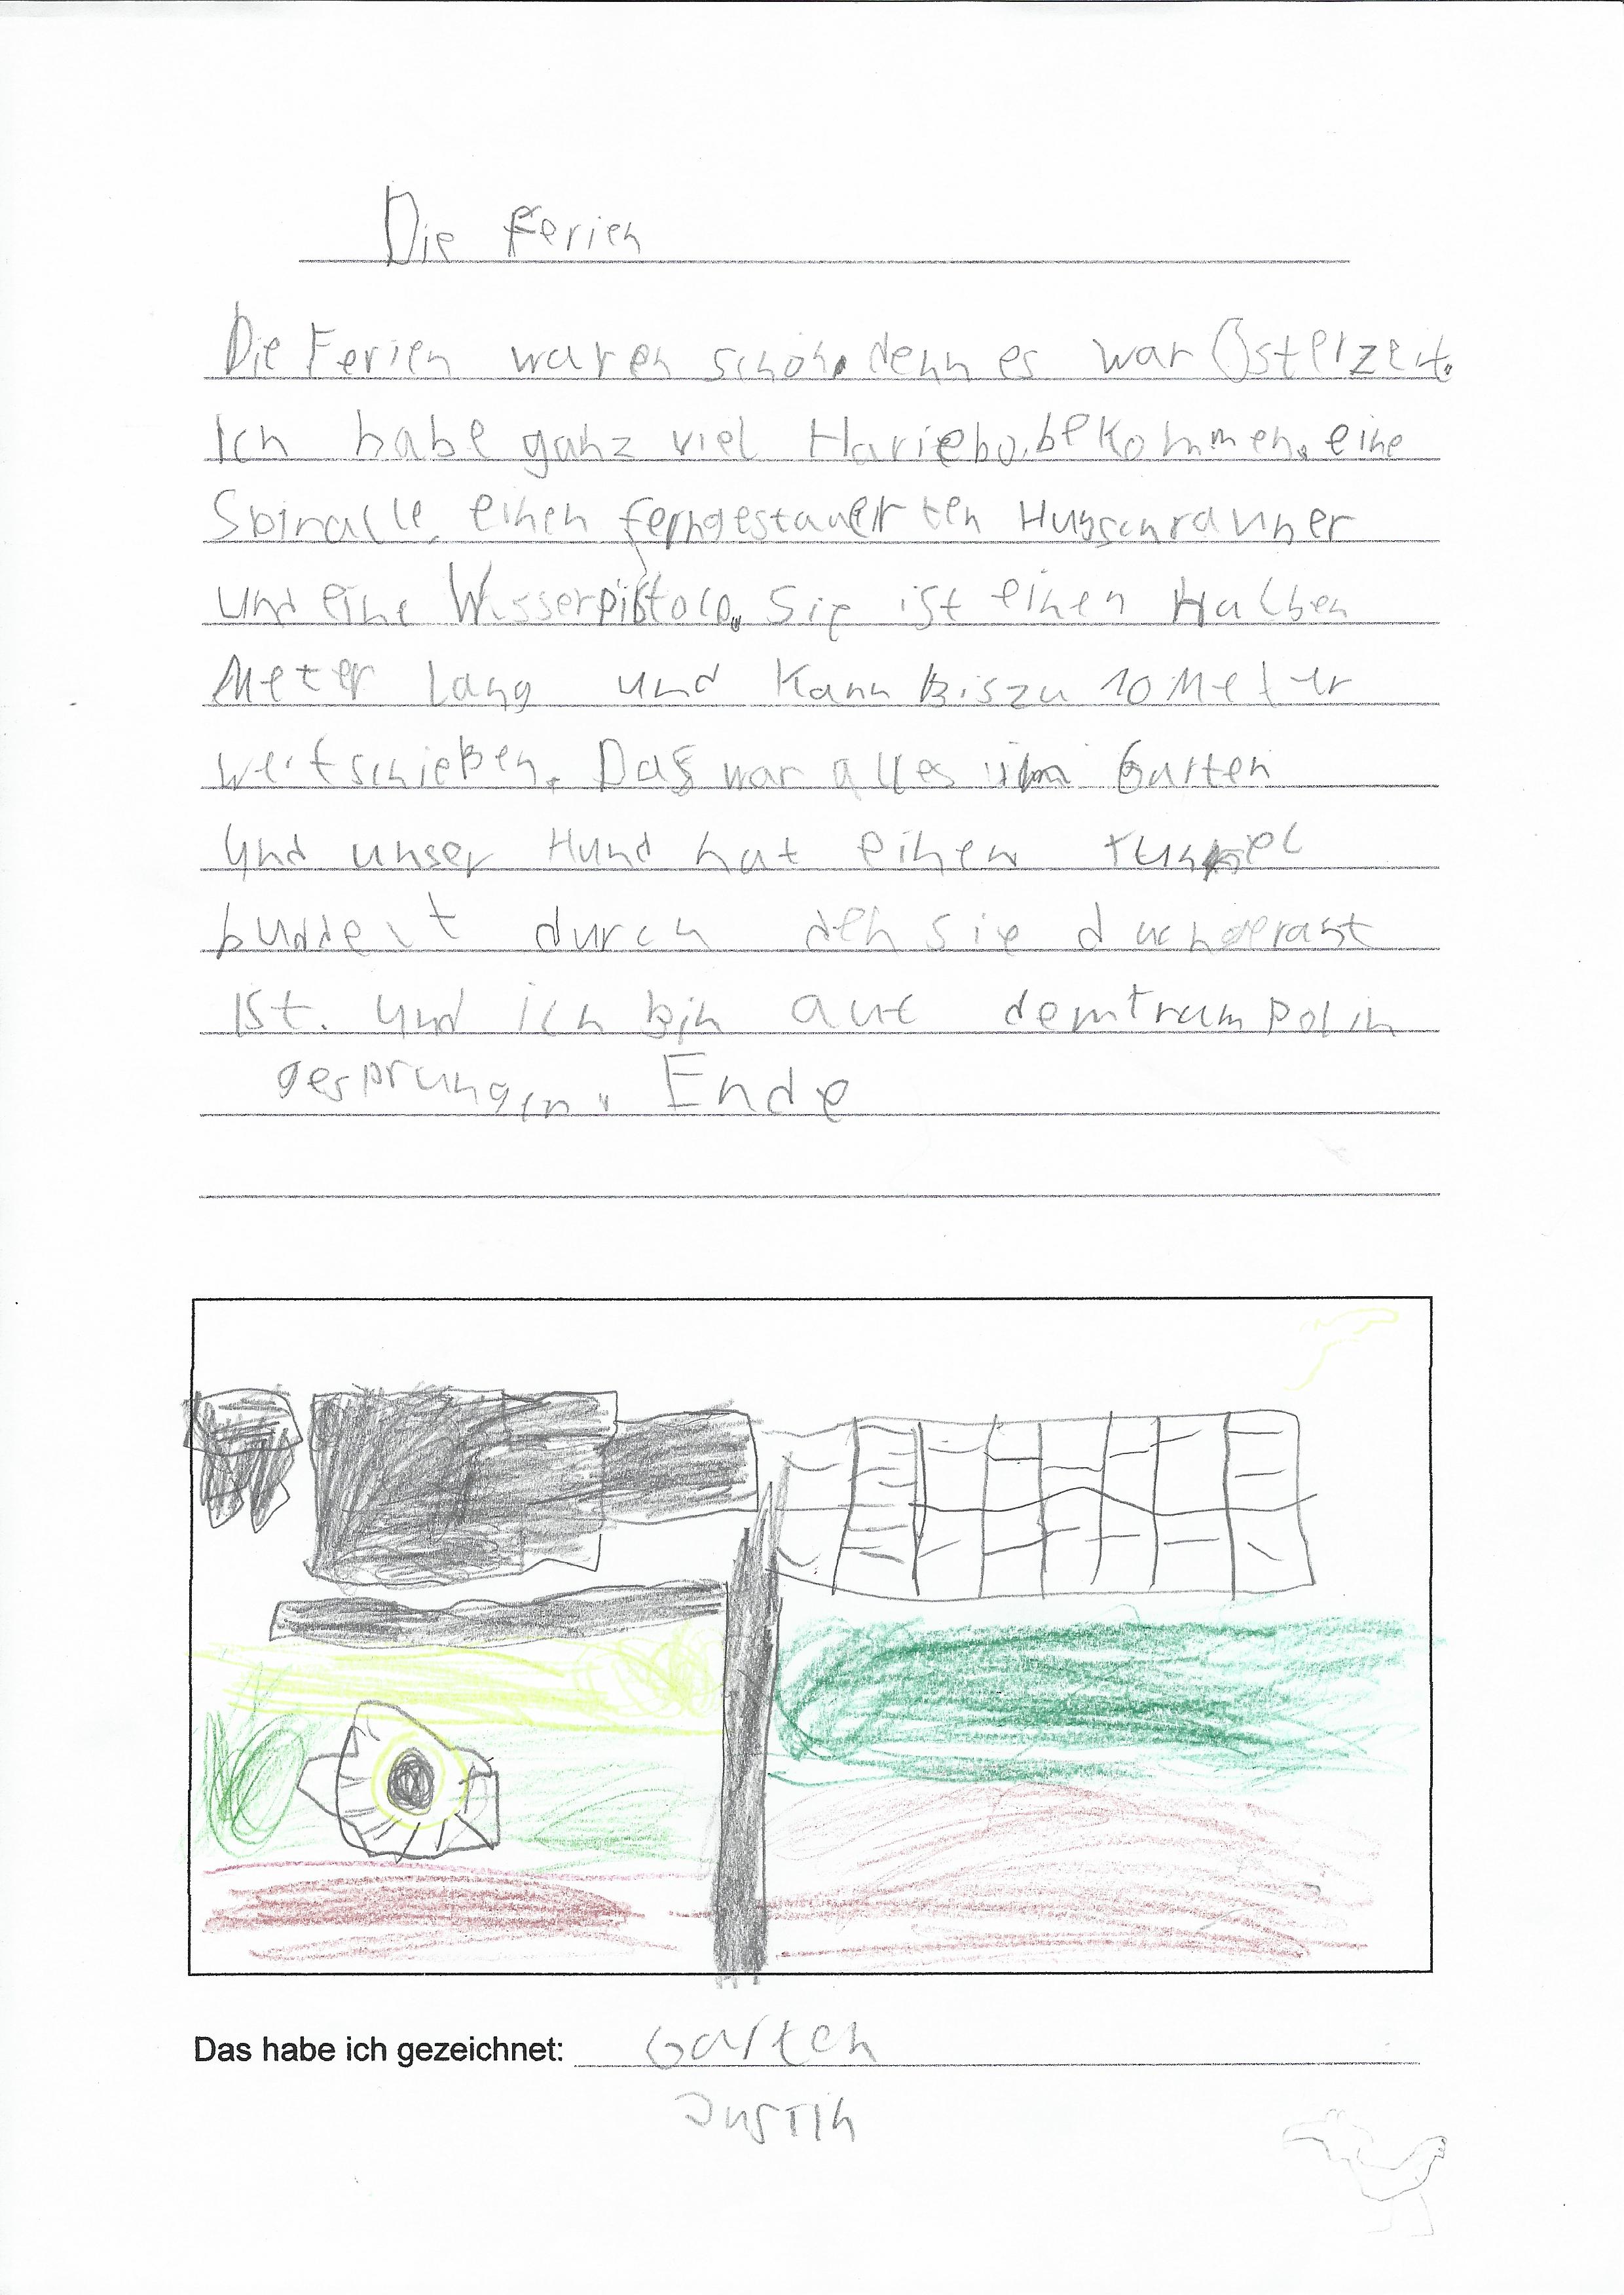 Die Ferien
Die Ferien waren schön, denn es war Osterzeit.
Ich habe ganz viel Hariebo. bekommen, eine
Spiralle, einen ferngestauerten Hubschrauner
und eine Wasserpistole. Sie ist einen Halben
Meter Lang und Kann Biszu 10 Meter
weitschießen. Das war alles im Garten
Und unser Hund hat einen tunnel
buddelt durch den sie duchgerast
Ist. und ich bin auf dem trampolin
gesprungen. Ende
Das habe ich gezeichnet: Garten
Justin